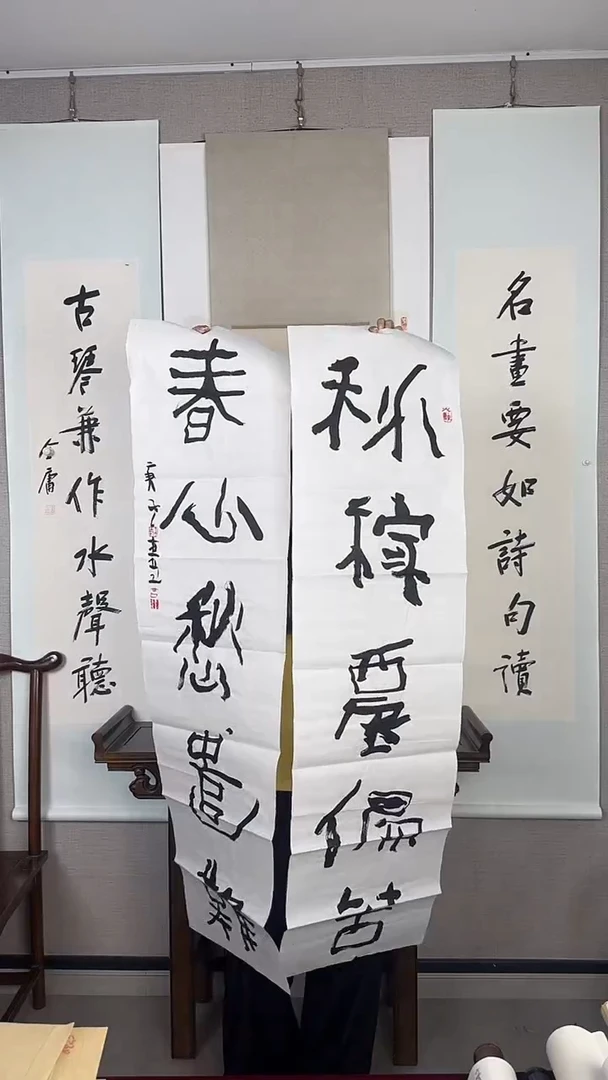 名畫要如詩句讀
秋稼偏苦
春心愁遣難
庚子
古琴兼作水聲聽
金庸